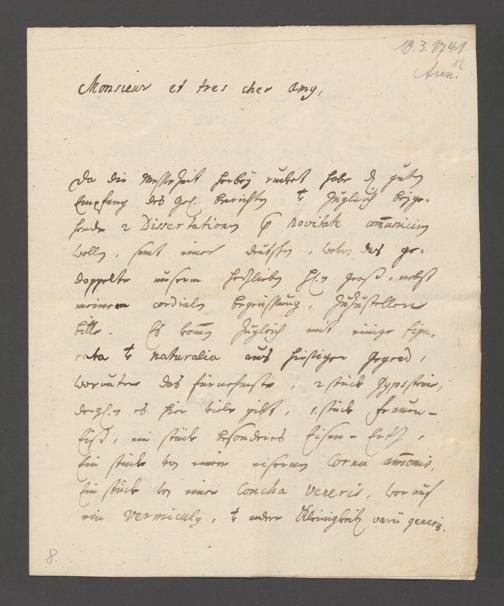 18.3.1741
Monsieur et tres cher Amy,
Da die herbey rucket habe d. guten
Empfang des zugleich beyge-
hende 2 Dissertationes p novitate com̄uniciren
wollen, samt einer wovon das ge-
doppelte unserm nebst
meinem cordialen begrüssung, zuzustellen
bitte. Es kom̄en zugleich mit einige figu-
rata naturalia aus hiesiger gegend,
worunter das fürnehmste, 2 stück Gypsstein,
dergl. es hier viele gibt, 1. stück frauen-
Eiß, ein stück besonderes Eisen-Ertz,
Ein stück von einem Cornu am̄onis,
Ein stück von einer Concha Veneris, worauf
ein vermiculus, andere Kleinigkeiten varii generis.
8.